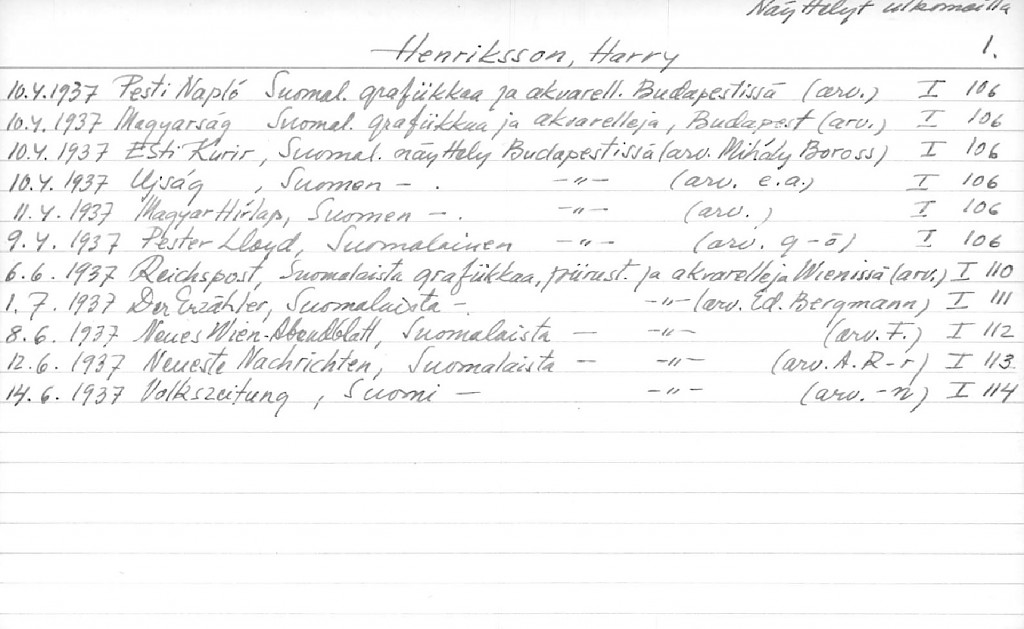 Näyttelyt ulkomailla
1.
Henriksson, Harry
10.4.1937 Pesti Napló Suomal. grafiikkaa ja akvarell. Budapestissä (arv.) I 106
10.4.1937 Magyarság Suomal. grafiikkaa ja akvarelleja, Budapest (arv.) I 106
10.4.1937 Esti Kurir, Suomal. näyttely Budapestissä (arv. Mihály Boross) I 106
10.4.1937 Ujság , Suomen - . -"- (arv. e.a.) I 106
11.4.1937 Magyar Hirlap, Suomen - . -"- (arv. ) I 106
9.4.1937 Pester Lloyd, Suomalainen -"- (arv. g-ö) I 106
6.6.1937 Reichspost, Suomalaista grafiikkaa, piirust. ja akvarelleja Wienissä (arv.) I 110
1.7.1937 Der Erzähler, Suomalaista - -"- (arv. Ed. Bergmann) I 111
8.6.1937 Neues Wien-Abendblatt, Suomalaista - -"- (arv. F.) I 112
12.6.1937 Neueste Nachrichten, Suomalaista - -"- (arv. A. R-r) I 113
14.6.1937 Volkszeitung , Suomi - -"- (arv. -n) I 114